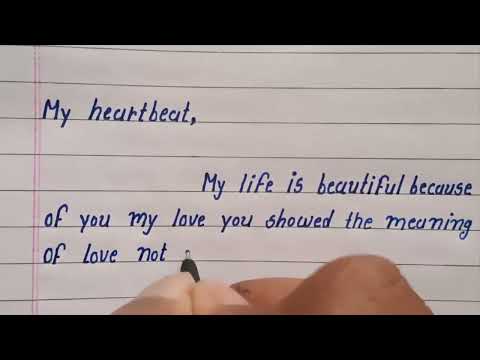 My heartbeat,
My life is beautiful because
of you my love you showed the meaning
of love not